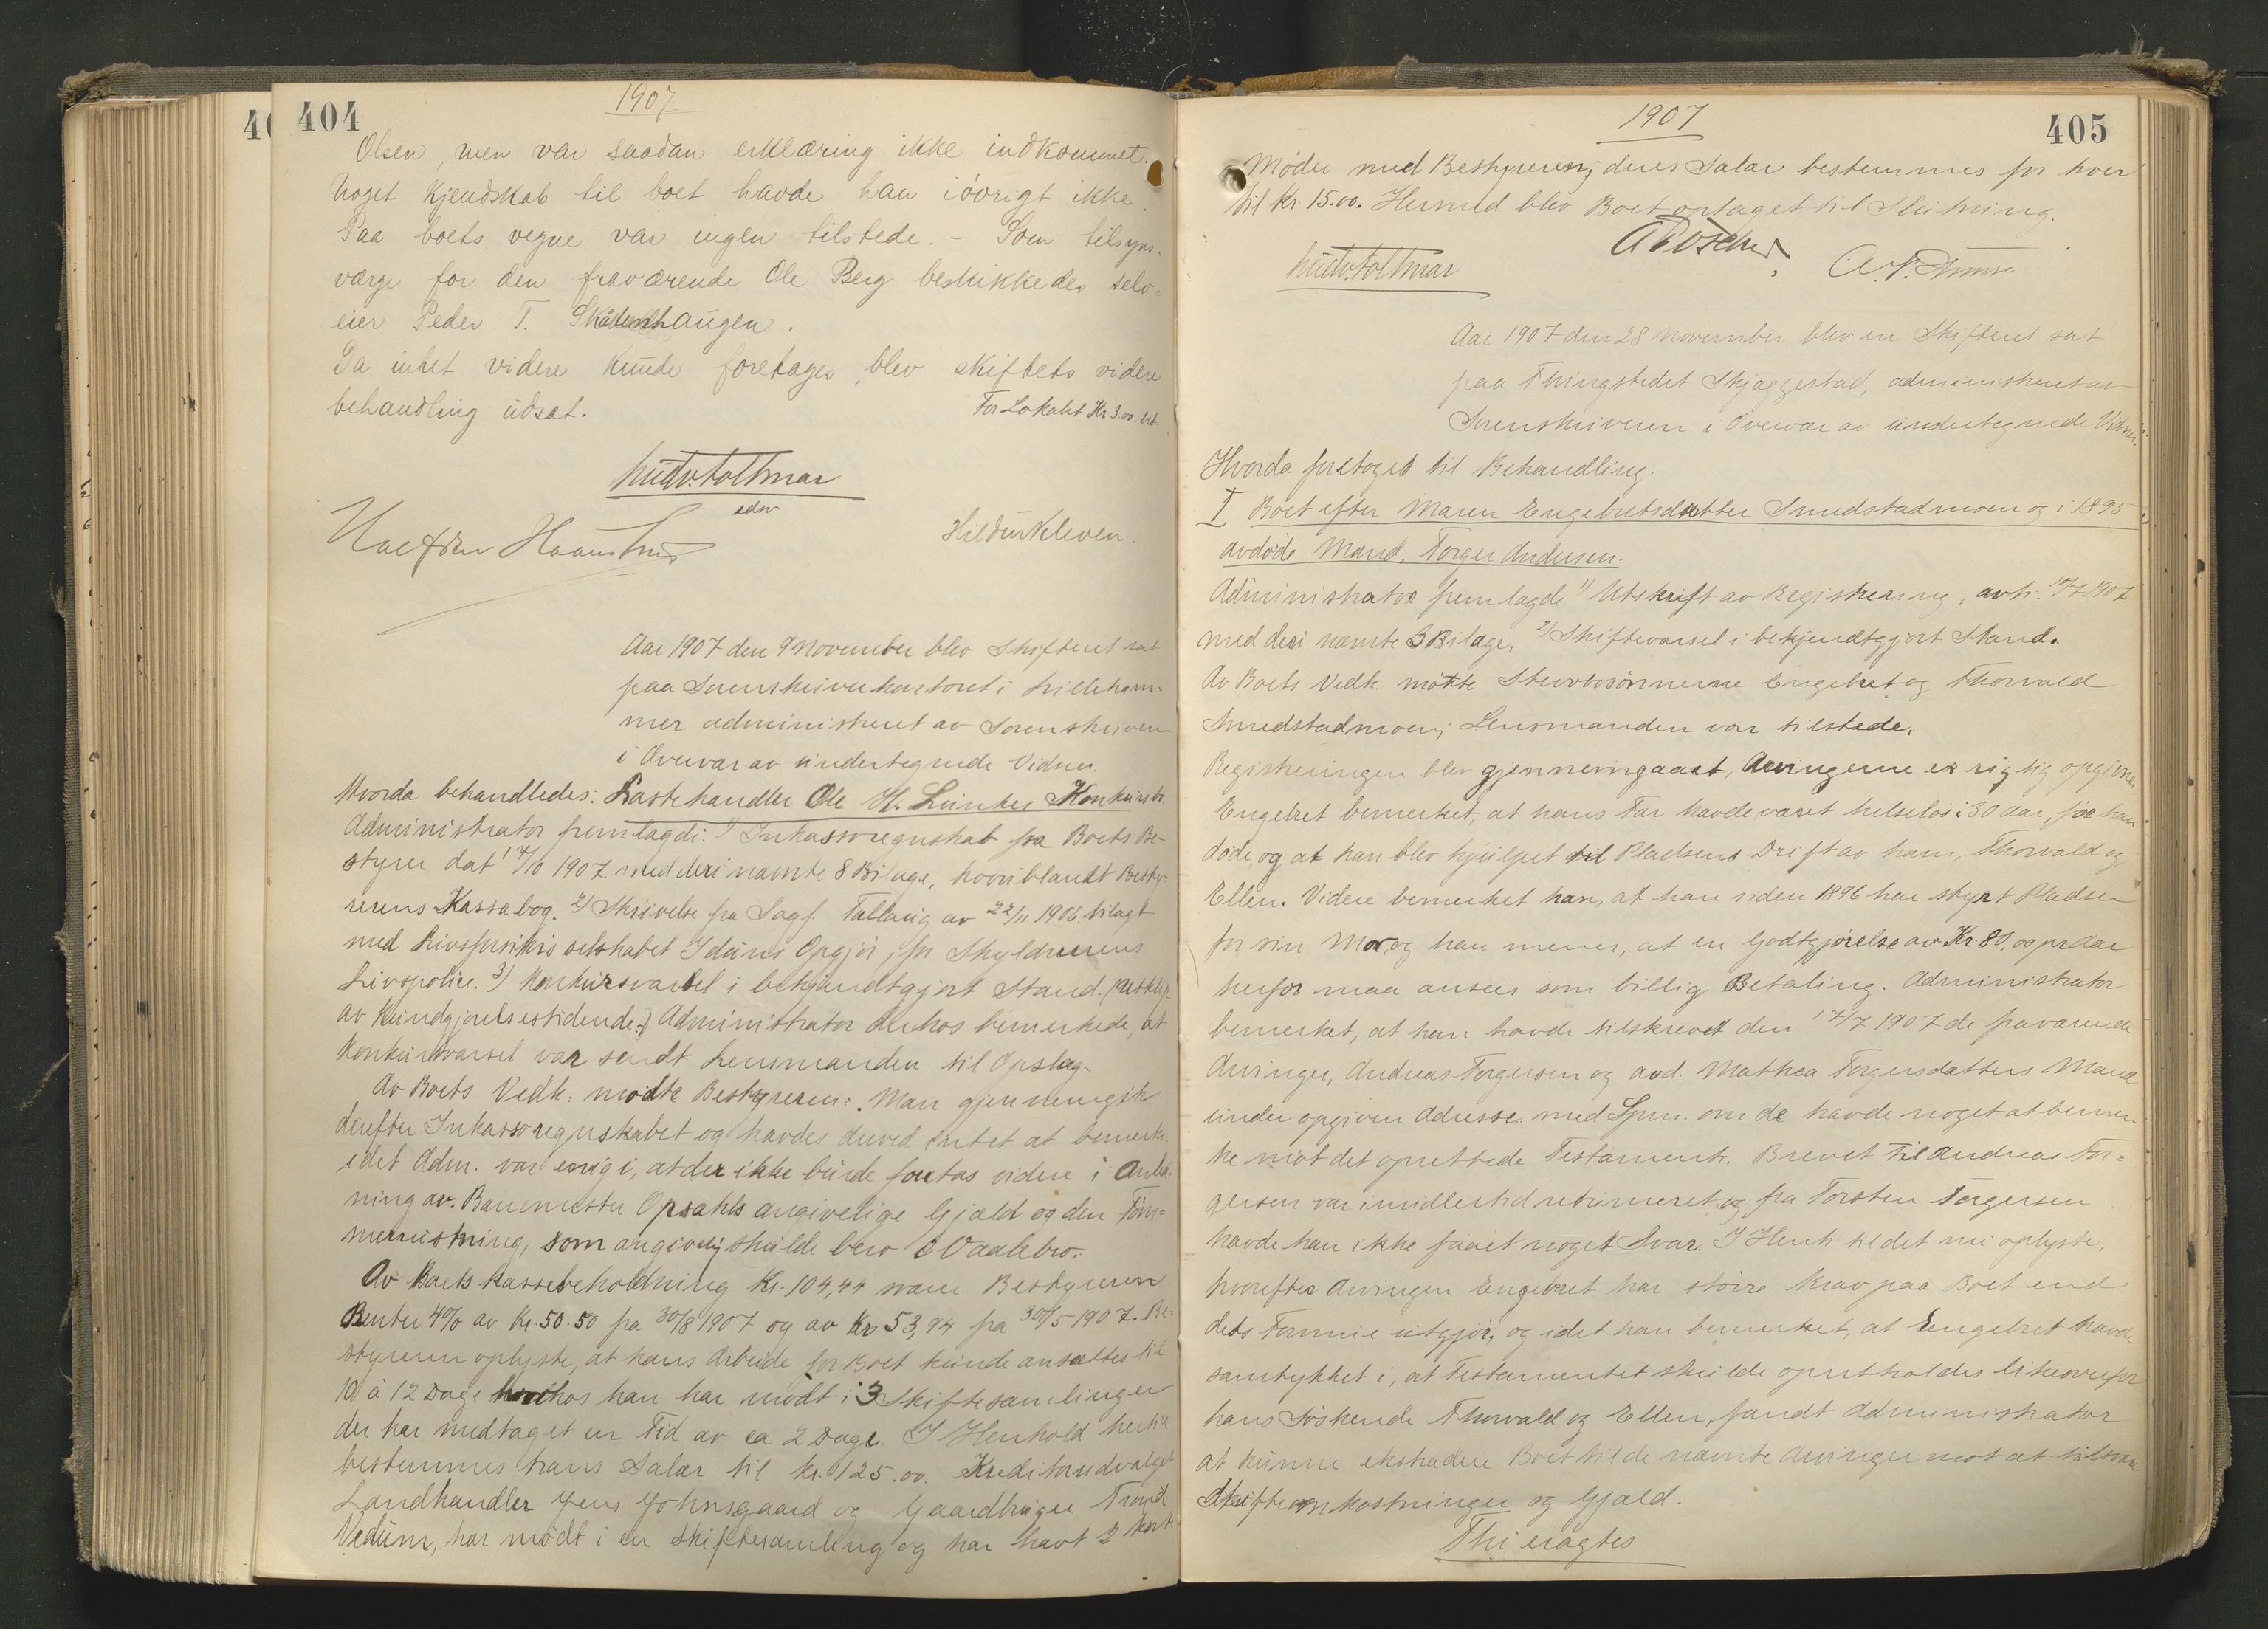 404
1907
Olsen, men var saadan erklæring ikke indkommet.
Noget kjendskab til boet havde han iøvrigt ikke.
Paa boets vegne var ingen tilstede. – Som tilsyns-
værge for den fraværende Ole Berg beskikkedes selv-
eier Peder T. haugen.
Da intet videre kunde foretages, blev skiftets videre
behandling udsat.
For Lokalet Kr 3.00. bet.
edsv
Hildur Kleven.
Aar 1907 den 9 November blev Skifteret sat
paa Sorenskriverkontoret i Lilleham-
mer administreret av Sorenskriveren
i Overvær av undertegnede Vidner.
Hvorda behandledes: Lastehandler Ole H. Lunkes Konkursbo.
Administrator fremlagde: 1) Inkassoregnskab fra Boets Be-
styrer dat 14/10 1907 med deri nævnte 8 Bilage, hvoriblandt Besty-
rerens Kassabog. 2) Skrivelse fra Sagf. Tallaug av 22/11 1906 bilagt
med Livsforsikrs selskabet Iduns Opgjør, for Skyldnerens
Livspolice. 3) Konkursvarsel i bekjendtgjort Stand. (Utklip
av Kundgjørelsestidende.) Administrator derhos bemerkede, at
Konkursvarsel var sendt Lensmanden til Opslag.
Av Boets Vedk. mødte Bestyreren. Man gjennemgik
derefter Inkassoregnskabet og havdes derved intet at bemerke
idet Adm. var enig i, at der ikke burde foretas videre i Anled-
ning av Baumester Opsahls angivelige Gjæld og den Tøm-
merrustning, som angivelig skulde bero i Vaalebro.
Av Boets Kassebeholdning Kr. 104,44 svarer Bestyreren
Renter 4% av Kr. 50.50 fra 30/8 1907 og av Kr 53,94 fra 30/5 1907. Be-
styreren oplyste, at hans Arbeide for Boet kunde ansættes til
10 à 12 Dage hvorhos han har mødt i 3 Skiftesamlinger
der har medtaget en Tid av ca 2 Dage. I Henhold hertil
bestemmes hans Salær til kr. 125.00. Kreditorudvalget
Landhandler Jens Johnsgaard og Gaardbruger Trond
Vedum, har mødt i en Skiftesamling og har havt 2
405
1907
Møder med Bestyreren; deres Salær bestemmes for hver
til Kr. 15.00. Hermed blev Boet optaget til Slutning.
Aar 1907 den 28 November blev en Skifteret sat
paa Thingstedet Skjæggestad, administreret av
Sorenskriveren i Overvær av undertegnede Vidner.
Hvorda foretoges til Behandling.
I Boet efter Maren Engebretsdatter Smedstadmoen og i 1895
avdøde Mand, Torger Andersen.
Administrator fremlagde 1) Utskrift av Registrering, avh. 10/7 1907
med deri nævnte 3 Bilage, 2) Skiftevarsel i bekjendtgjort Stand.
Av Boets Vedk. møtte Stervbosønnerne Engebret og Thorvald
Smedstadmoen; Lensmanden var tilstede.
Registreringen blev gjennemgaaet, Arvingerne er rigtig opgivne
Engebret bemerket, at hans Far havde været helseløs i 30 aar, før han
døde, og at han blev hjulpet til Pladsens Drift av ham, Thorvald og
Ellen. Videre bemerket han, at han siden 1896 har styrt Pladsen
for sin Mor, og han mener, at en Godtgjørelse av Kr 80, og pr Aar
herfor maa ansees som billig Betaling. Administrator
bemerket, at han havde tilskrevet den 17/7 1907 de fraværende
Arvinger, Andreas Torgersen og avd. Mathea Torgersdatters Mand
under opgiven Adresse med Spm. om de havde noget at bemer-
ke mot det oprettede Testament. Brevet til Andreas Tor-
gersen var imidlertid returneret, og fra Torsten Torgersen
havde han ikke faaet noget Svar. I Henh. til det nu oplyste,
hvorefter Arvingen Engebret har større krav paa Boet end
dets Formue utgjør, og idet han bemerket, at Engebret havde
samtykket i, at Testamentet skulde opretholdes likeoverfor
hans Søskende Thorvald og Ellen, fandt Administrator
at kunne ekstradere Boet til de nævnte Arvinger mot at tilsvare
Skifteomkostninger og Gjæld.
Thi eragtes